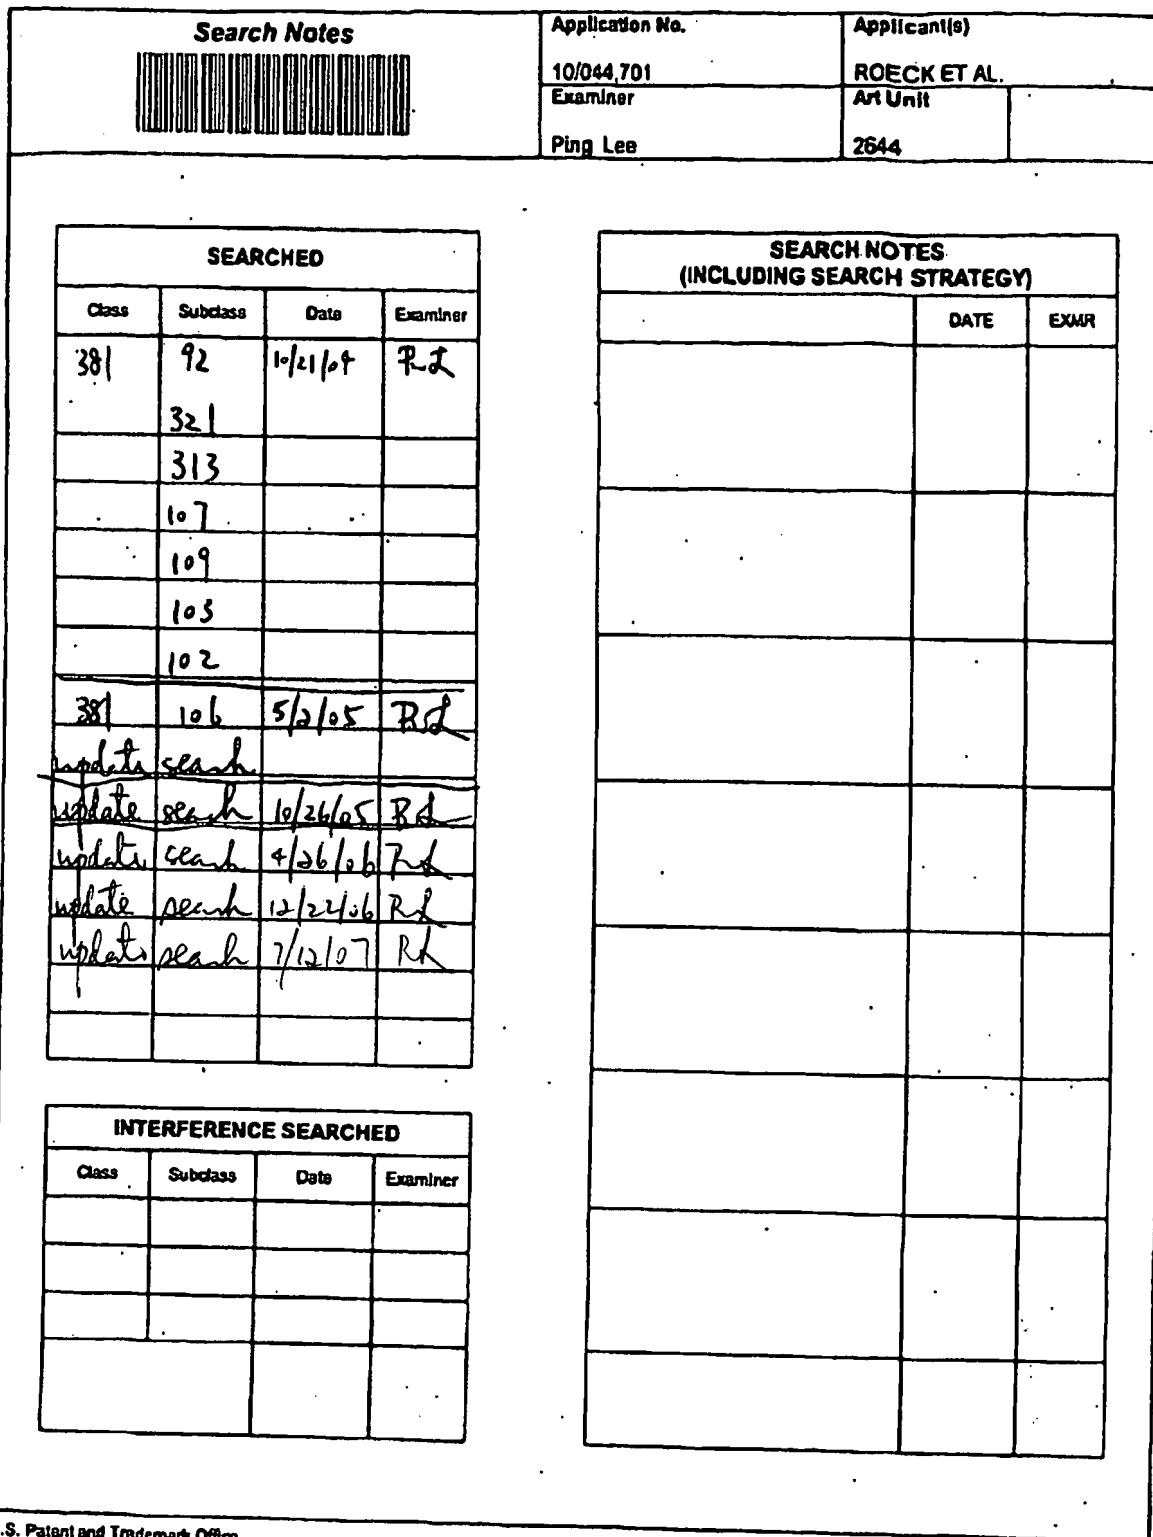 Search Notes
Application No.
Applicant(s)
10/044,701
ROECK ET AL.
Examiner
Art Unit
Ping Lee
2644
SEARCHED
Class Subclass Date Examiner
381 92 10/21/04
321
313
107
109
103
102
381 106 5/2/05
update search
update search 10/26/05
update search 4/26/06
update search 12/22/06
update search 7/12/07
INTERFERENCE SEARCHED
Class Subclass Date Examiner
SEARCH NOTES
(INCLUDING SEARCH STRATEGY)
DATE EXMR
.S. Patent and Trademark Office